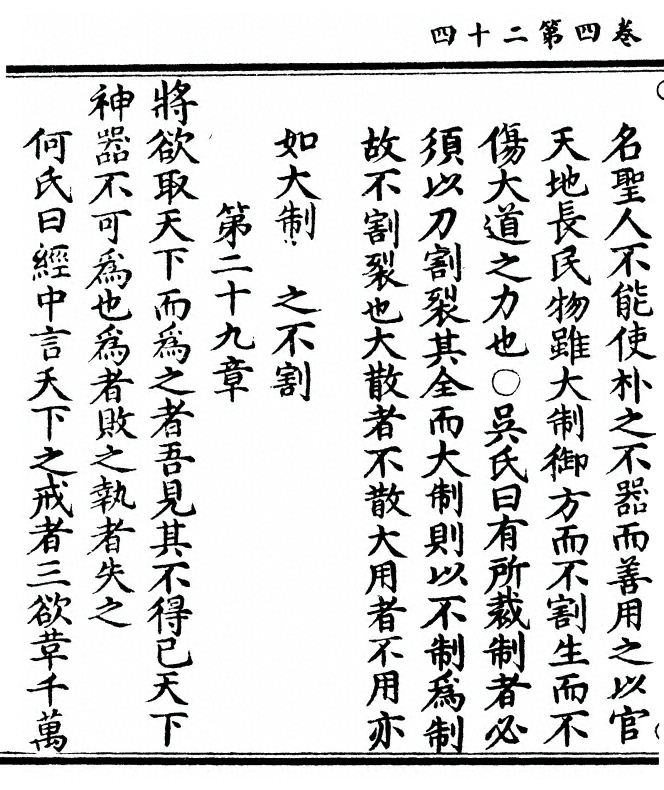 卷四第二十四
名聖人不能使朴之不器而善用之以官
天地長民物雖大制御方而不割生而不
傷大道之力也○吳氏曰有所裁制者必
須以刀割裂其全而大制則以不制爲制
故不割裂也大散者不散大用者不用亦
如大制 之不割
第二十九章
將欲取天下而爲之者吾見其不得已天下
神器不可爲也爲者敗之執者失之
何氏曰經中言天下之戒者三欲葷千萬